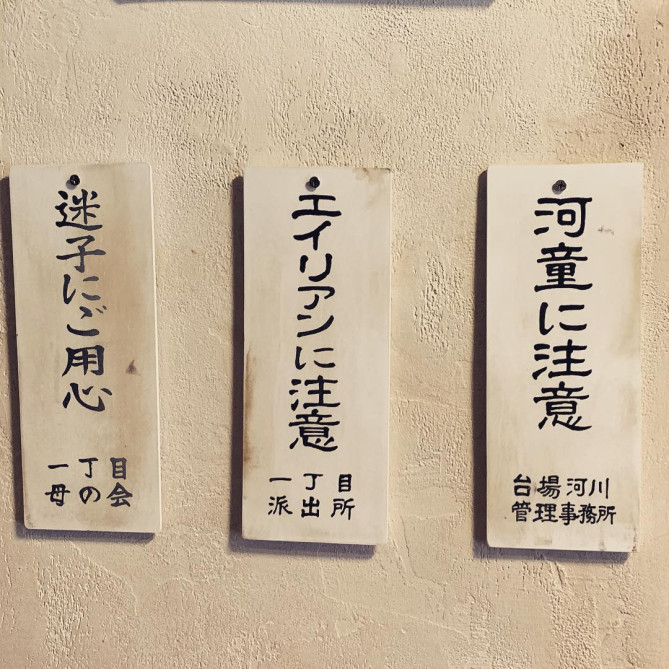 迷子にご用心
一丁目
母の会
エイリアンに注意
一丁目
派出所
河童に注意
台場河川
管理事務所